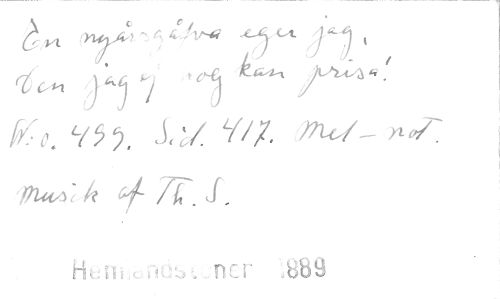 En nyårsgåfva eger jag,
Den jag ej nog kan prisa!
N:o. 499. Sid. 417. Mel-not.
Musik af Th. S.
Hemlandstoner 1889